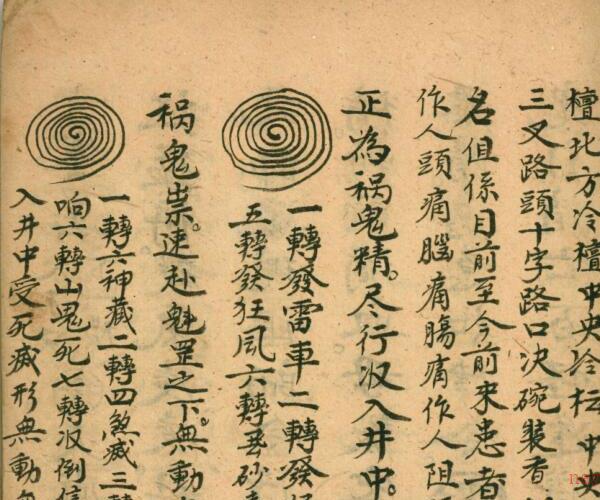 檀北方冷檀中央冷坛中央
三叉路頭十字路口决碗装香
名但係目前至今前来患者
作人頭痛腦痛腸痛作人阻
正為祸鬼精。尽行収入井中。
一轉發雷車二轉發
五轉發狂風六轉飛砂
祸鬼祟。速赴魁罡之下。無動
一轉六神藏二轉四煞滅三
响六轉山鬼死七轉収倒
入井中受死滅形無動